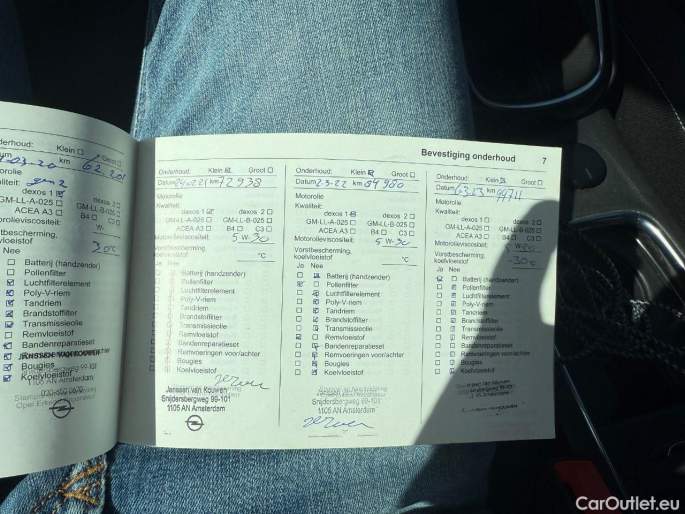 Bevestiging onderhoud 7
Onderhoud: Klein Groot
km 62.201
Motorolie
gen 2
dexos 1 dexos 2
GM-LL-A-025
ACEA A3 B4 C3
Motorolieviscositeit: W-
Vorstbescherming,
koelvloeistof
30°C
Nee
Batterij (handzender)
Pollenfilter
Luchtfilterelement
Poly-V-riem
Tandriem
Brandstoffilter
Transmissieolie
Remvloeistof
Bandenreparatieset
JANSSEN VAN KOUWEN
Bougies
Koelvloeistof
1105 AN Amsterdam
Opel
Onderhoud: Klein Groot
Datum km 72938
Motorolie
Kwaliteit:
dexos 1 dexos 2
GM-LL-A-025 GM-LL-B-025
ACEA A3 B4 C3
Motorolieviscositeit: 5 W-30
Vorstbescherming,
koelvloeistof °C
Ja Nee
Batterij (handzender)
Pollenfilter
Luchtfilterelement
Poly-V-riem
Tandriem
Brandstoffilter
Transmissieolie
Remvloeistof
Bandenreparatieset
Remvoeringen voor/achter
Bougies
Koelvloeistof
Janssen van Kouwen
Snijdersbergweg 99-101
1105 AN Amsterdam
Onderhoud: Klein Groot
Datum 2-3-22 km 84980
Motorolie
Kwaliteit:
dexos 1 dexos 2
GM-LL-A-025 GM-LL-B-025
ACEA A3 B4 C3
Motorolieviscositeit: 5 W-30
Vorstbescherming,
koelvloeistof °C
Ja Nee
Batterij (handzender)
Pollenfilter
Luchtfilterelement
Poly-V-riem
Tandriem
Brandstoffilter
Transmissieolie
Remvloeistof
Bandenreparatieset
Remvoeringen voor/achter
Bougies
Koelvloeistof
Snijdersbergweg 99-101
1105 AN Amsterdam
Onderhoud: Klein Groot
Datum km
Motorolie
Kwaliteit:
dexos 1 dexos 2
GM-LL-A-025 GM-LL-B-025
ACEA A3 B4 C3
Motorolieviscositeit:
Vorstbescherming,
koelvloeistof -30°C
Ja Nee
Batterij (handzender)
Pollenfilter
Luchtfilterelement
Poly-V-riem
Tandriem
Brandstoffilter
Transmissieolie
Remvloeistof
Bandenreparatieset
Remvoeringen voor/achter
Bougies
Koelvloeistof
CarOutlet.eu